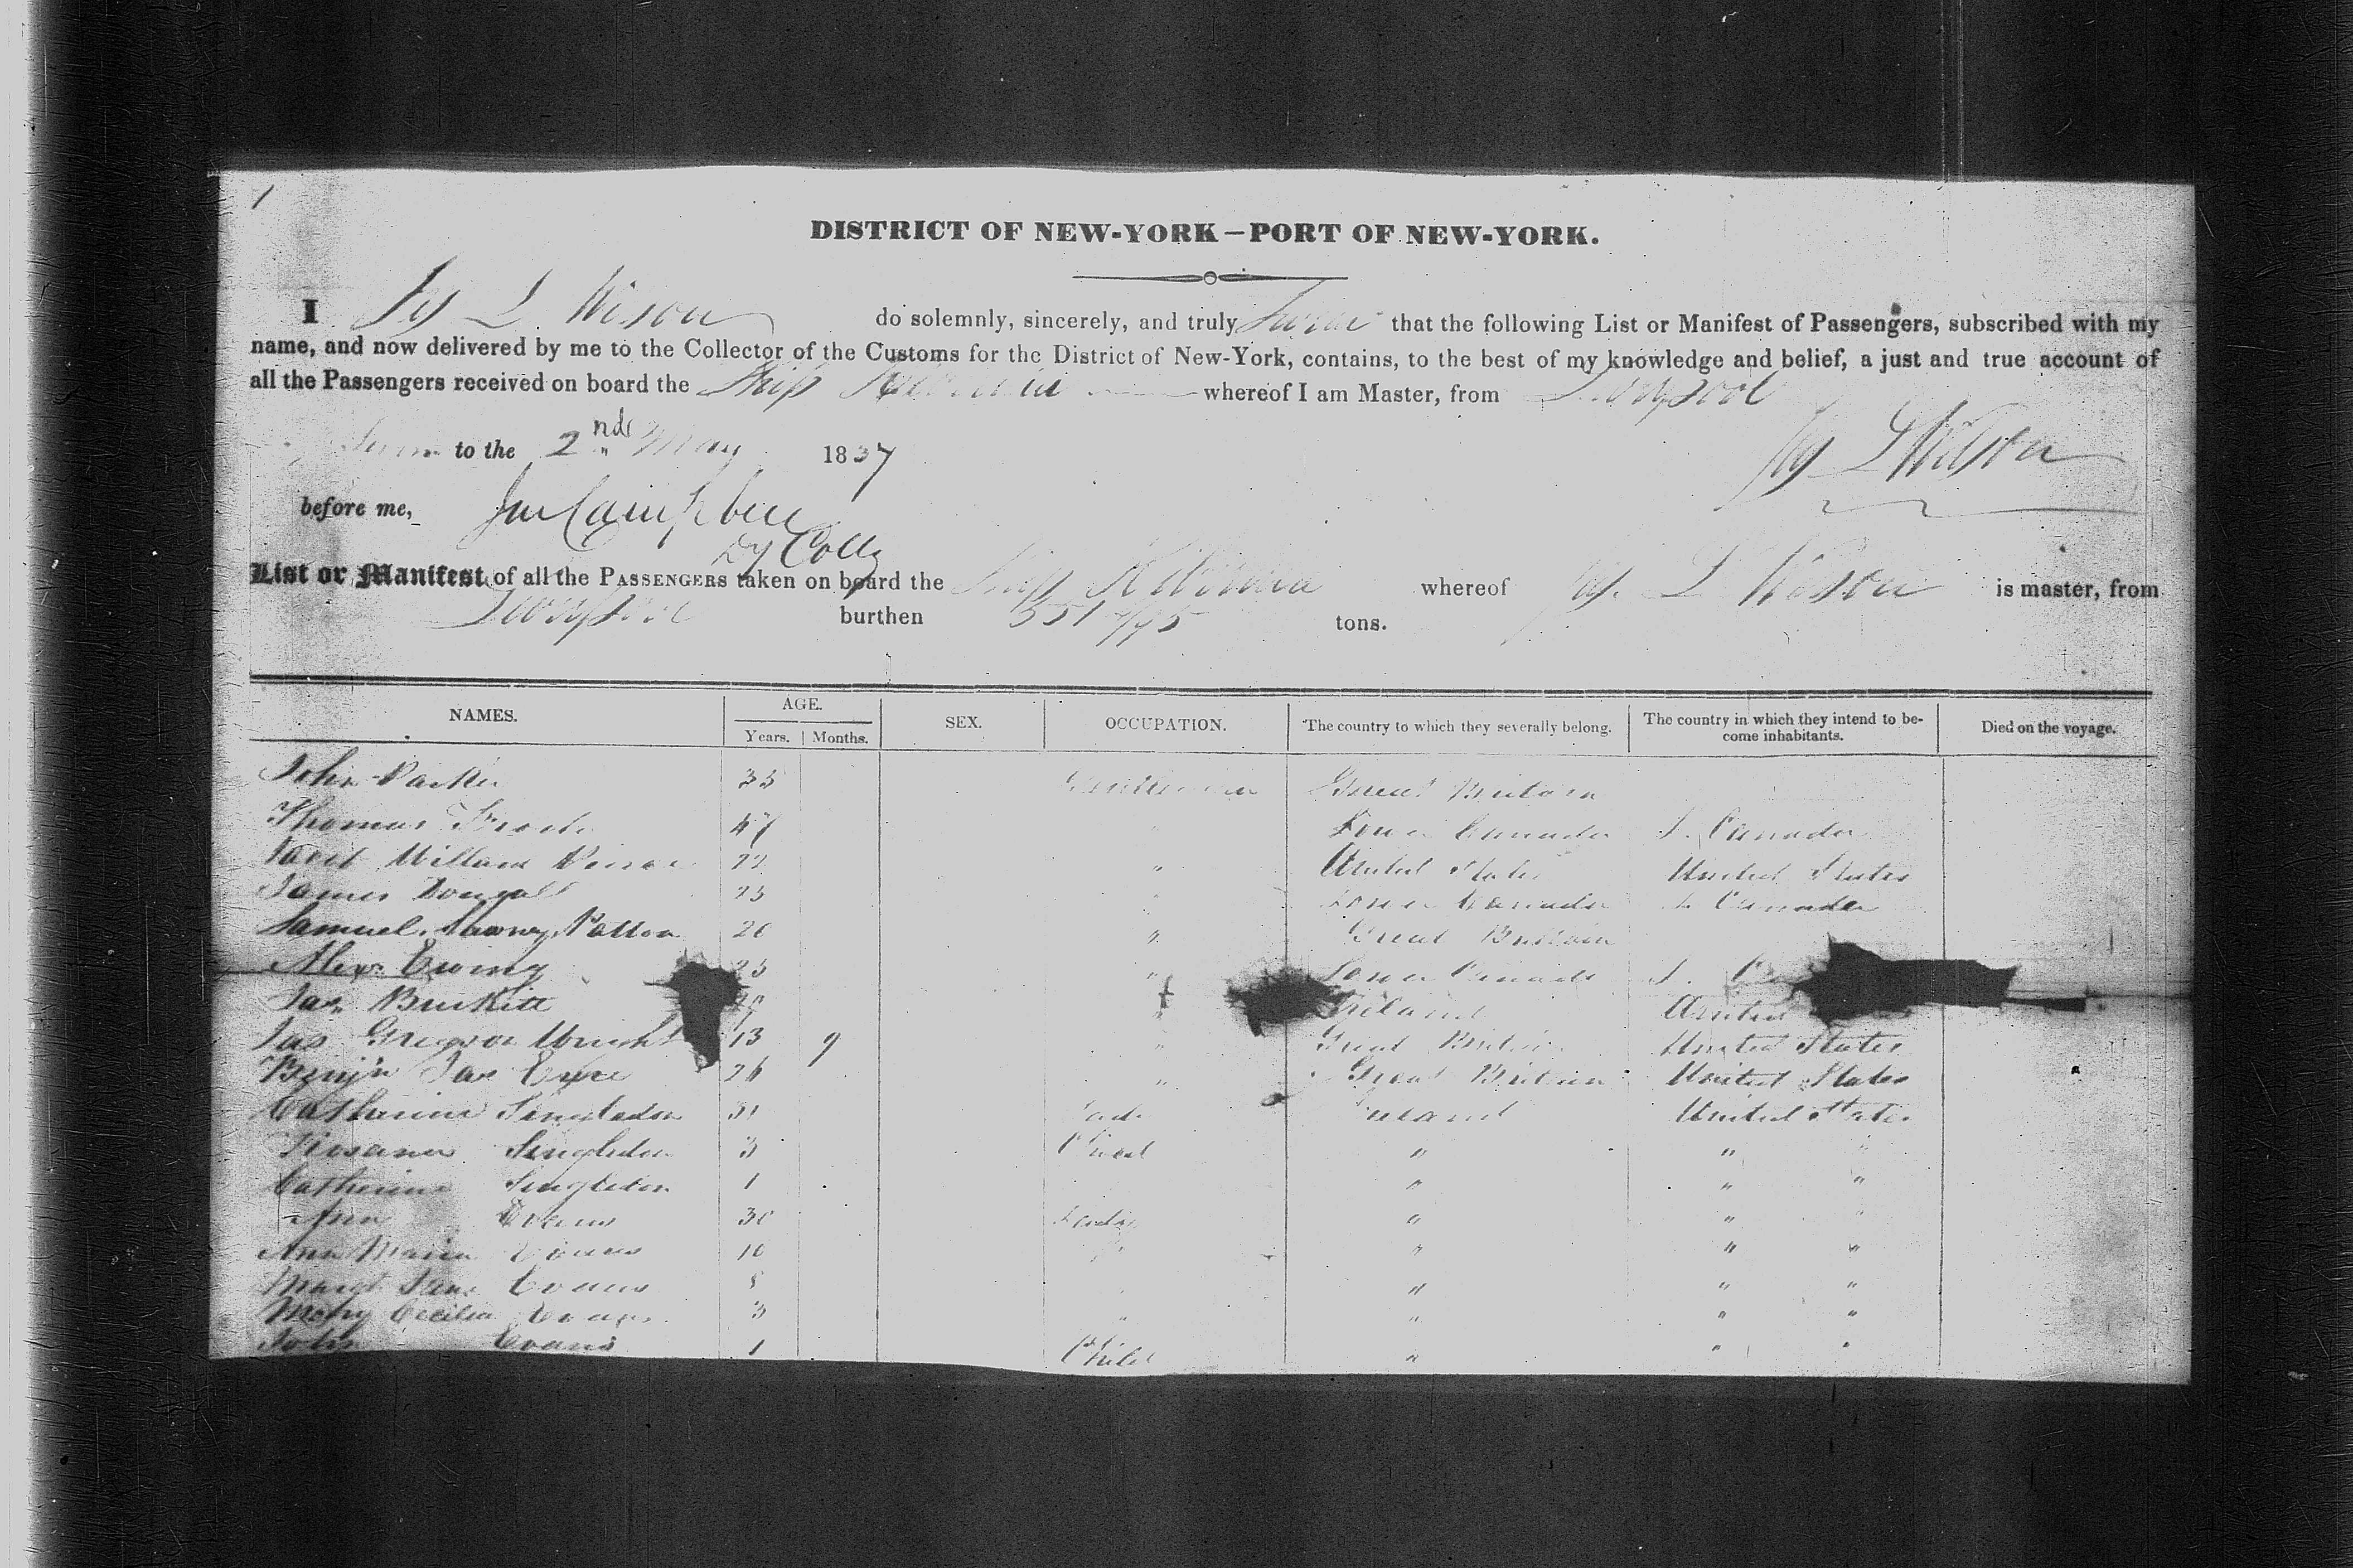 DISTRICT OF NEW-YORK—PORT OF NEW-YORK.
I Jas L Wilson do solemnly, sincerely, and truly Swear that the following List or Manifest of Passengers, subscribed with my
name, and now delivered by me to the Collector of the Customs for the District of New-York, contains, to the best of my knowledge and belief, a just and true account of
all the Passengers received on board the Ship whereof I am Master, from Liverpool
to the 2nd May 1837
L Wilson
before me,
Dy Coll
List or Manifest of all the PASSENGERS taken on board the Ship whereof L Wilson is master, from
Liverpool burthen 551 tons.
NAMES. AGE. SEX. OCCUPATION. The country to which they severally belong. The country in which they intend to be-
Years. Months. come inhabitants. Died on the voyage.
John Parker 35 Gentleman Great Britain
Thomas 47 " Lower Canada L. Canada
Willard " United States United States
James Dougall " Lower Canada L. Canada
Samuel " Great Britain
Alexr Ewing " Lower Canada L.
Jas Burkitt " Ireland United
Jas Gregor Wright 13 9 " Great Britain United States
Benjn Jas 26 " Great Britain United States
Catherine Singleton Lady Ireland United States
Singleton 3 Child " " "
Catherine Singleton 1 " " "
Ann Evans 30 Lady " " "
Ann Maria Evans 10 " " " "
Margt Jane Evans 8 " " " "
Mary Cecilia Evans 3 " " " "
John Evans 1 Child " " "